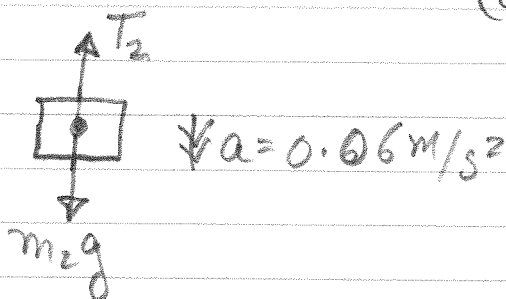 T₂
a = 0.06 m/s²
m₂g